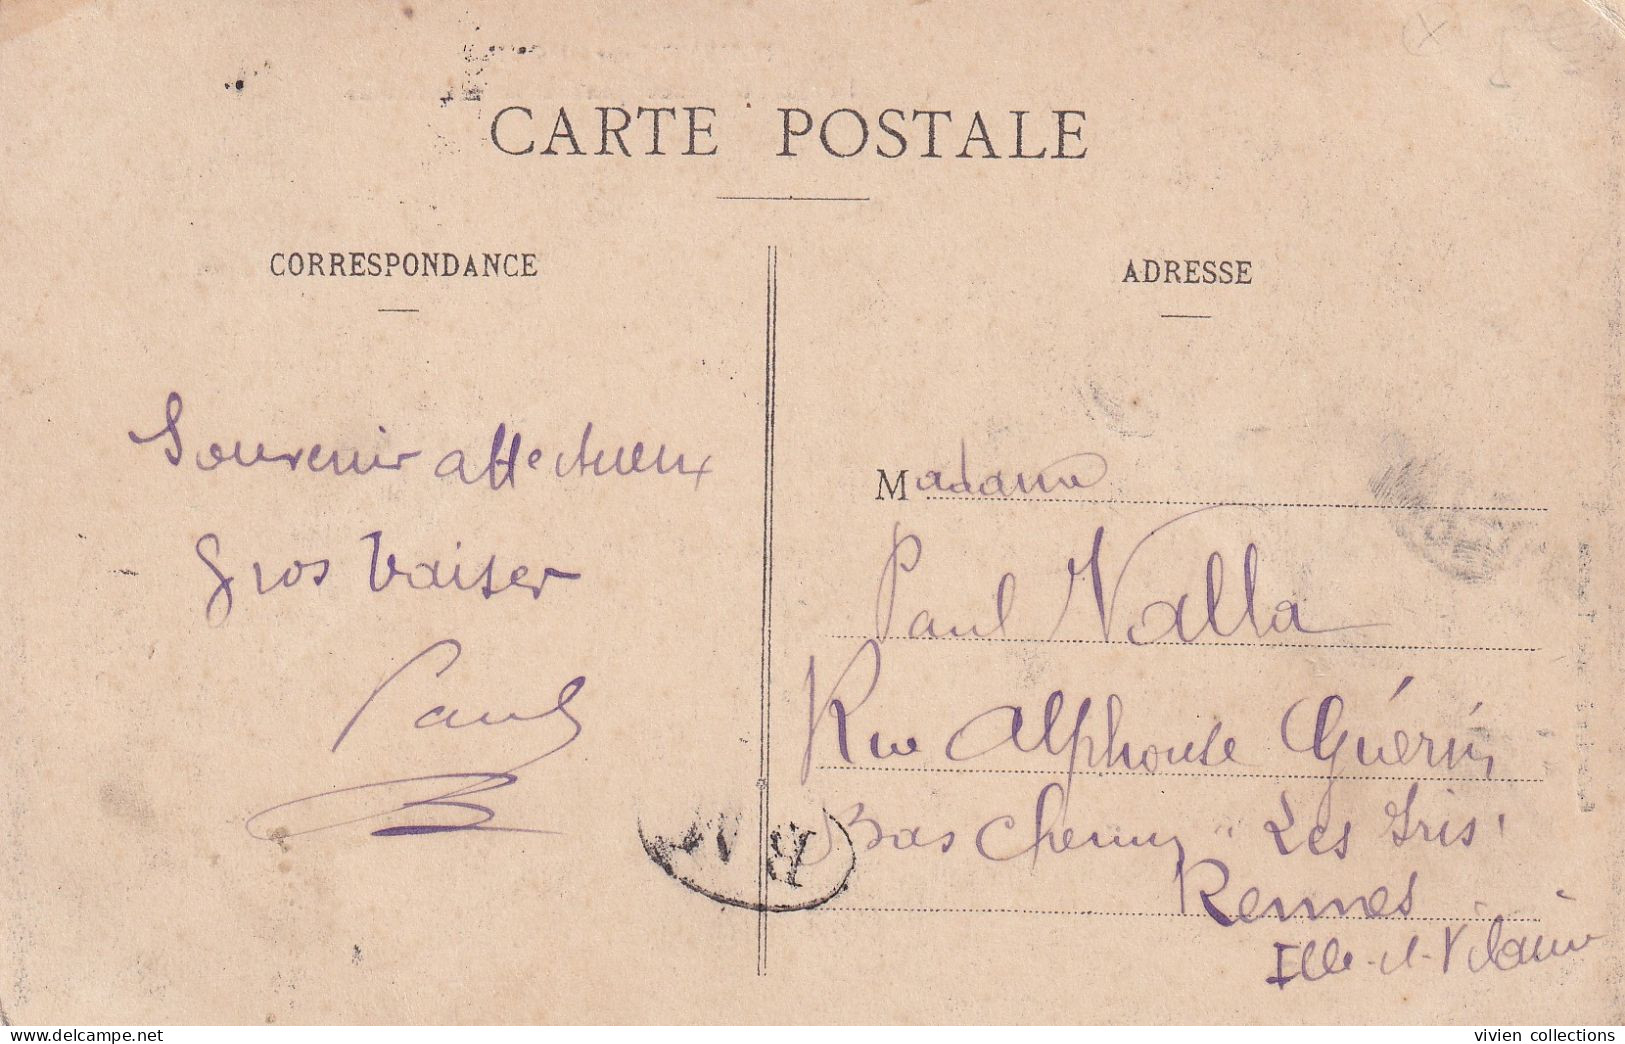 CARTE POSTALE
CORRESPONDANCE
Souvenir affectueux
gros baiser
Paul
ADRESSE
Madame
Paul Valla
Rue Alphonse Guérin
Bas Chemin "Les Iris"
Rennes
Ille-et-Vilaine
delcampe.net
vivien collections